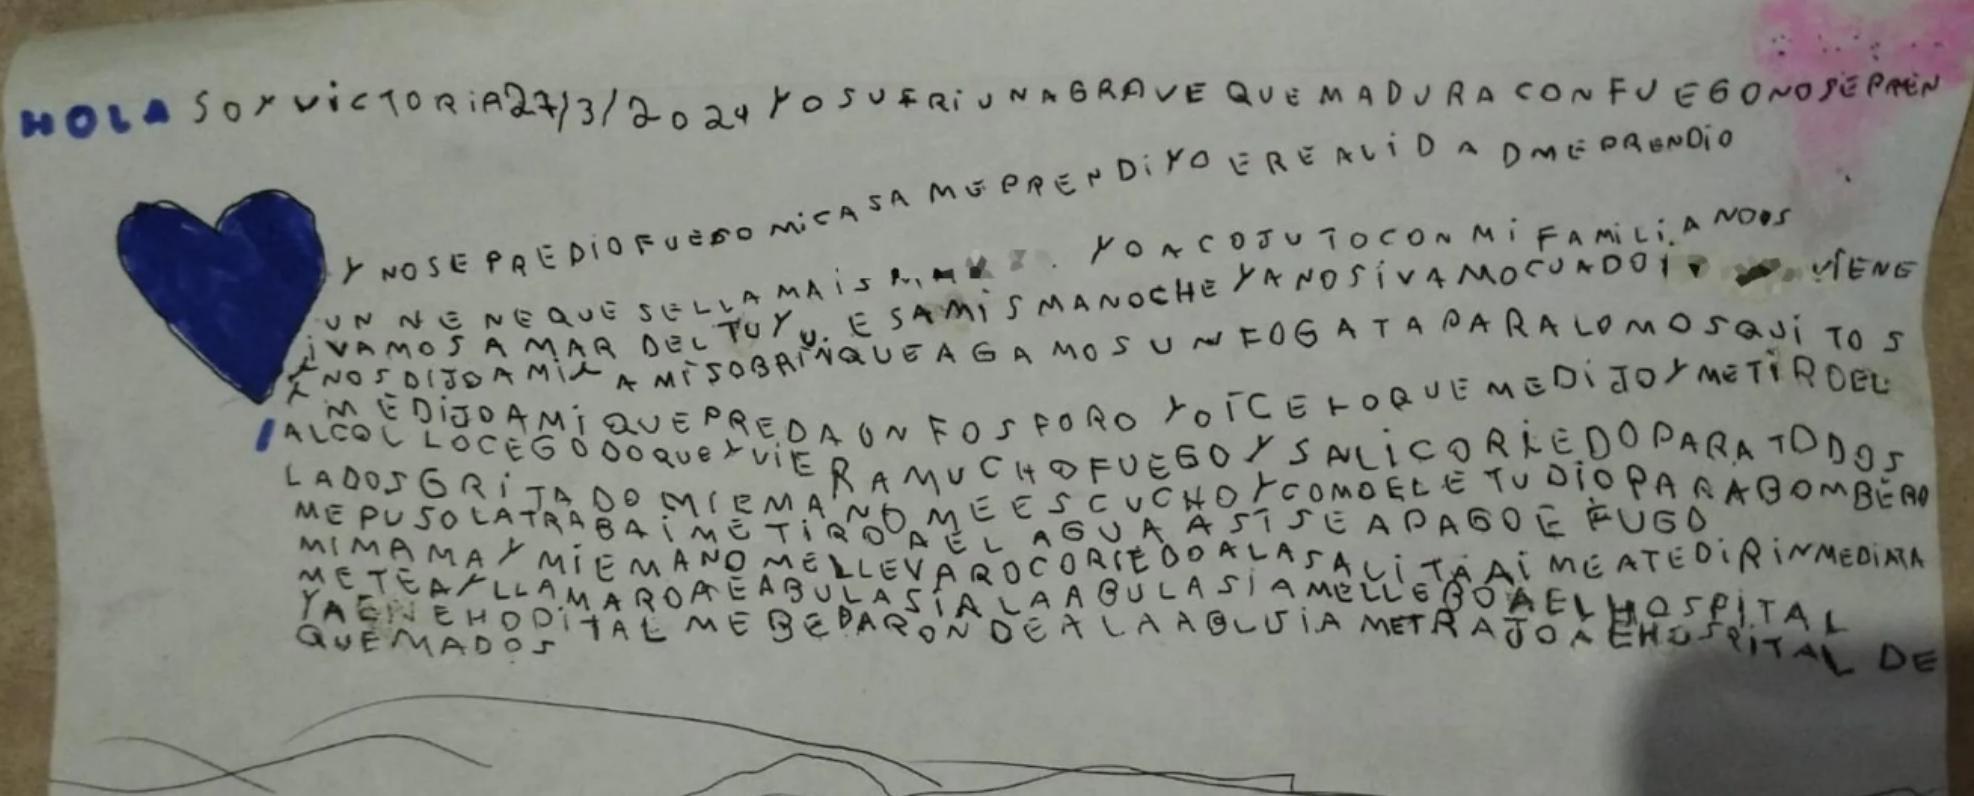 HOLA SOY VICTORIA 27/3/2024 YO SUFRI UNA GRAVE QUEMADURA CON FUEGO NO SE PREN
Y NO SE PREDIO FUEGO MI CASA ME PRENDI YO E REALIDAD ME PRENDIO
UN NENE QUE SE LLAMA YO ACOJUTO CON MI FAMILIA NOOS
IVAMOS A MAR DEL TUYU. ESA MISMA NOCHE YA NOS IVAMO CUADO VIENE
Y NOS DIJO A MI Y A MI SOBRIN QUE AGAMOS UN FOGATA PARA LO MOSQUITOS
Y ME DIJO A MI QUE PREDA UN FOSFORO YO ICE LO QUE ME DIJO Y ME TIRO EL
ALCOL LO CEGODO QUE Y VIERA MUCHO FUEGO Y SALI CORIEDO PARA TODOS
LADOS GRITADO MI EMANO ME ESCUCHO Y COMO EL ETUDIO PARA BOMBERO
ME PUSO LA TRABA I ME TIRO A EL AGUA ASI SE APAGO E FUGO
MI MAMA Y MI EMANO ME LLEVARO CORIEDO A LA SALITA AI ME ATEDIR INMEDIATA
METE A Y LLAMARO A E ABULASIA LA ABULASIA ME LLEBO A EL HOSPITAL
YA EN E HOPITAL ME BEPARON DE A LA ABLUSIA ME TRAJO A E HOSPITAL DE
QUEMADOS